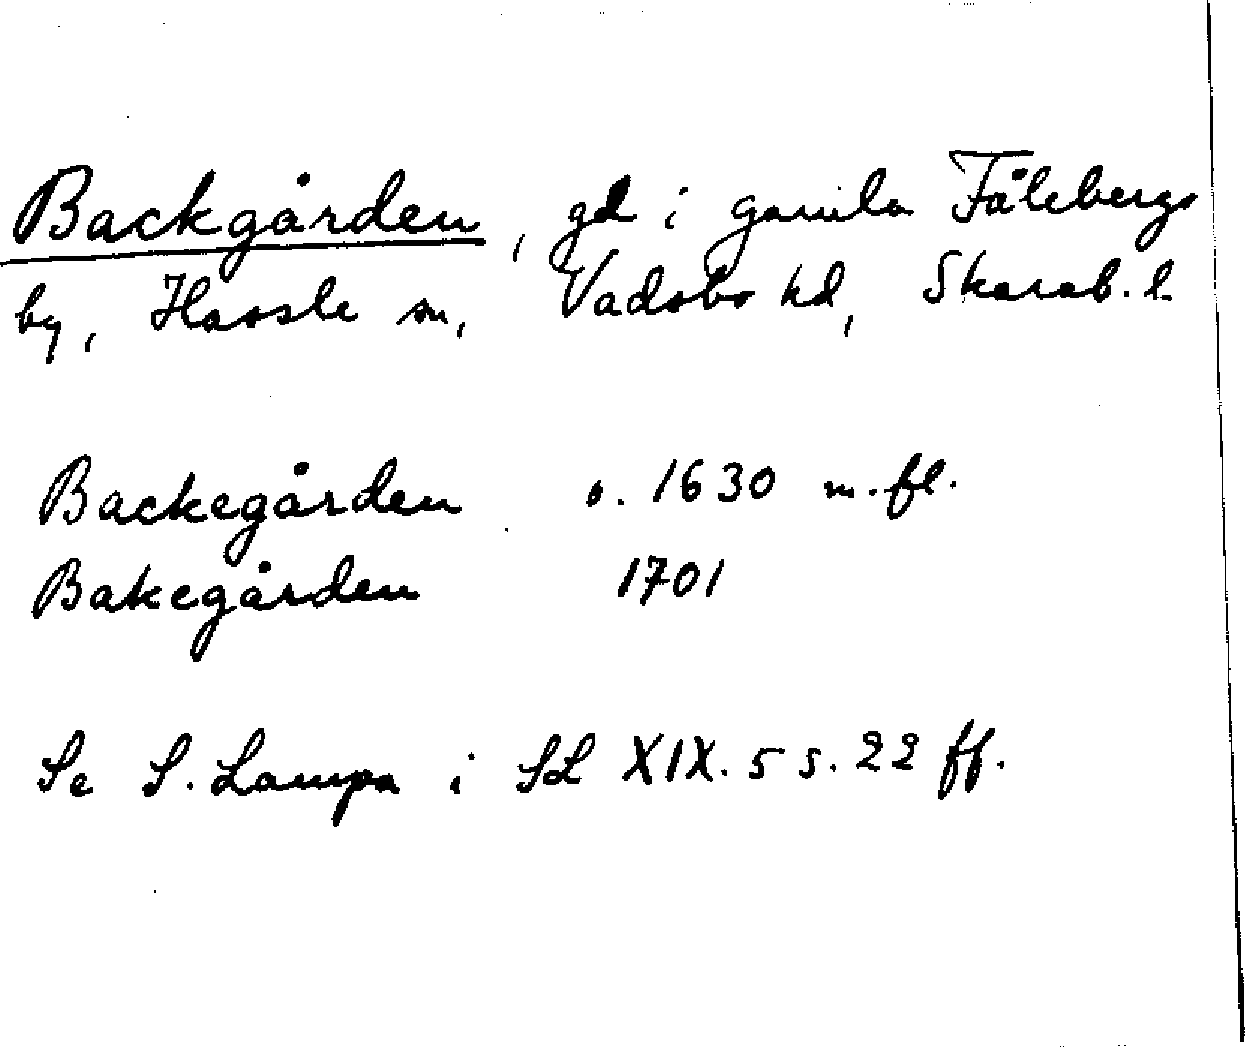 Backgården, gd i gamla Fålebergs
by, Hassle sn, Vadsbo hd, Skarab. l.
Backegården o. 1630 m. fl.
Bakegården 1701
Se S. Lampa i SL XIX. 5 s. 22 ff.